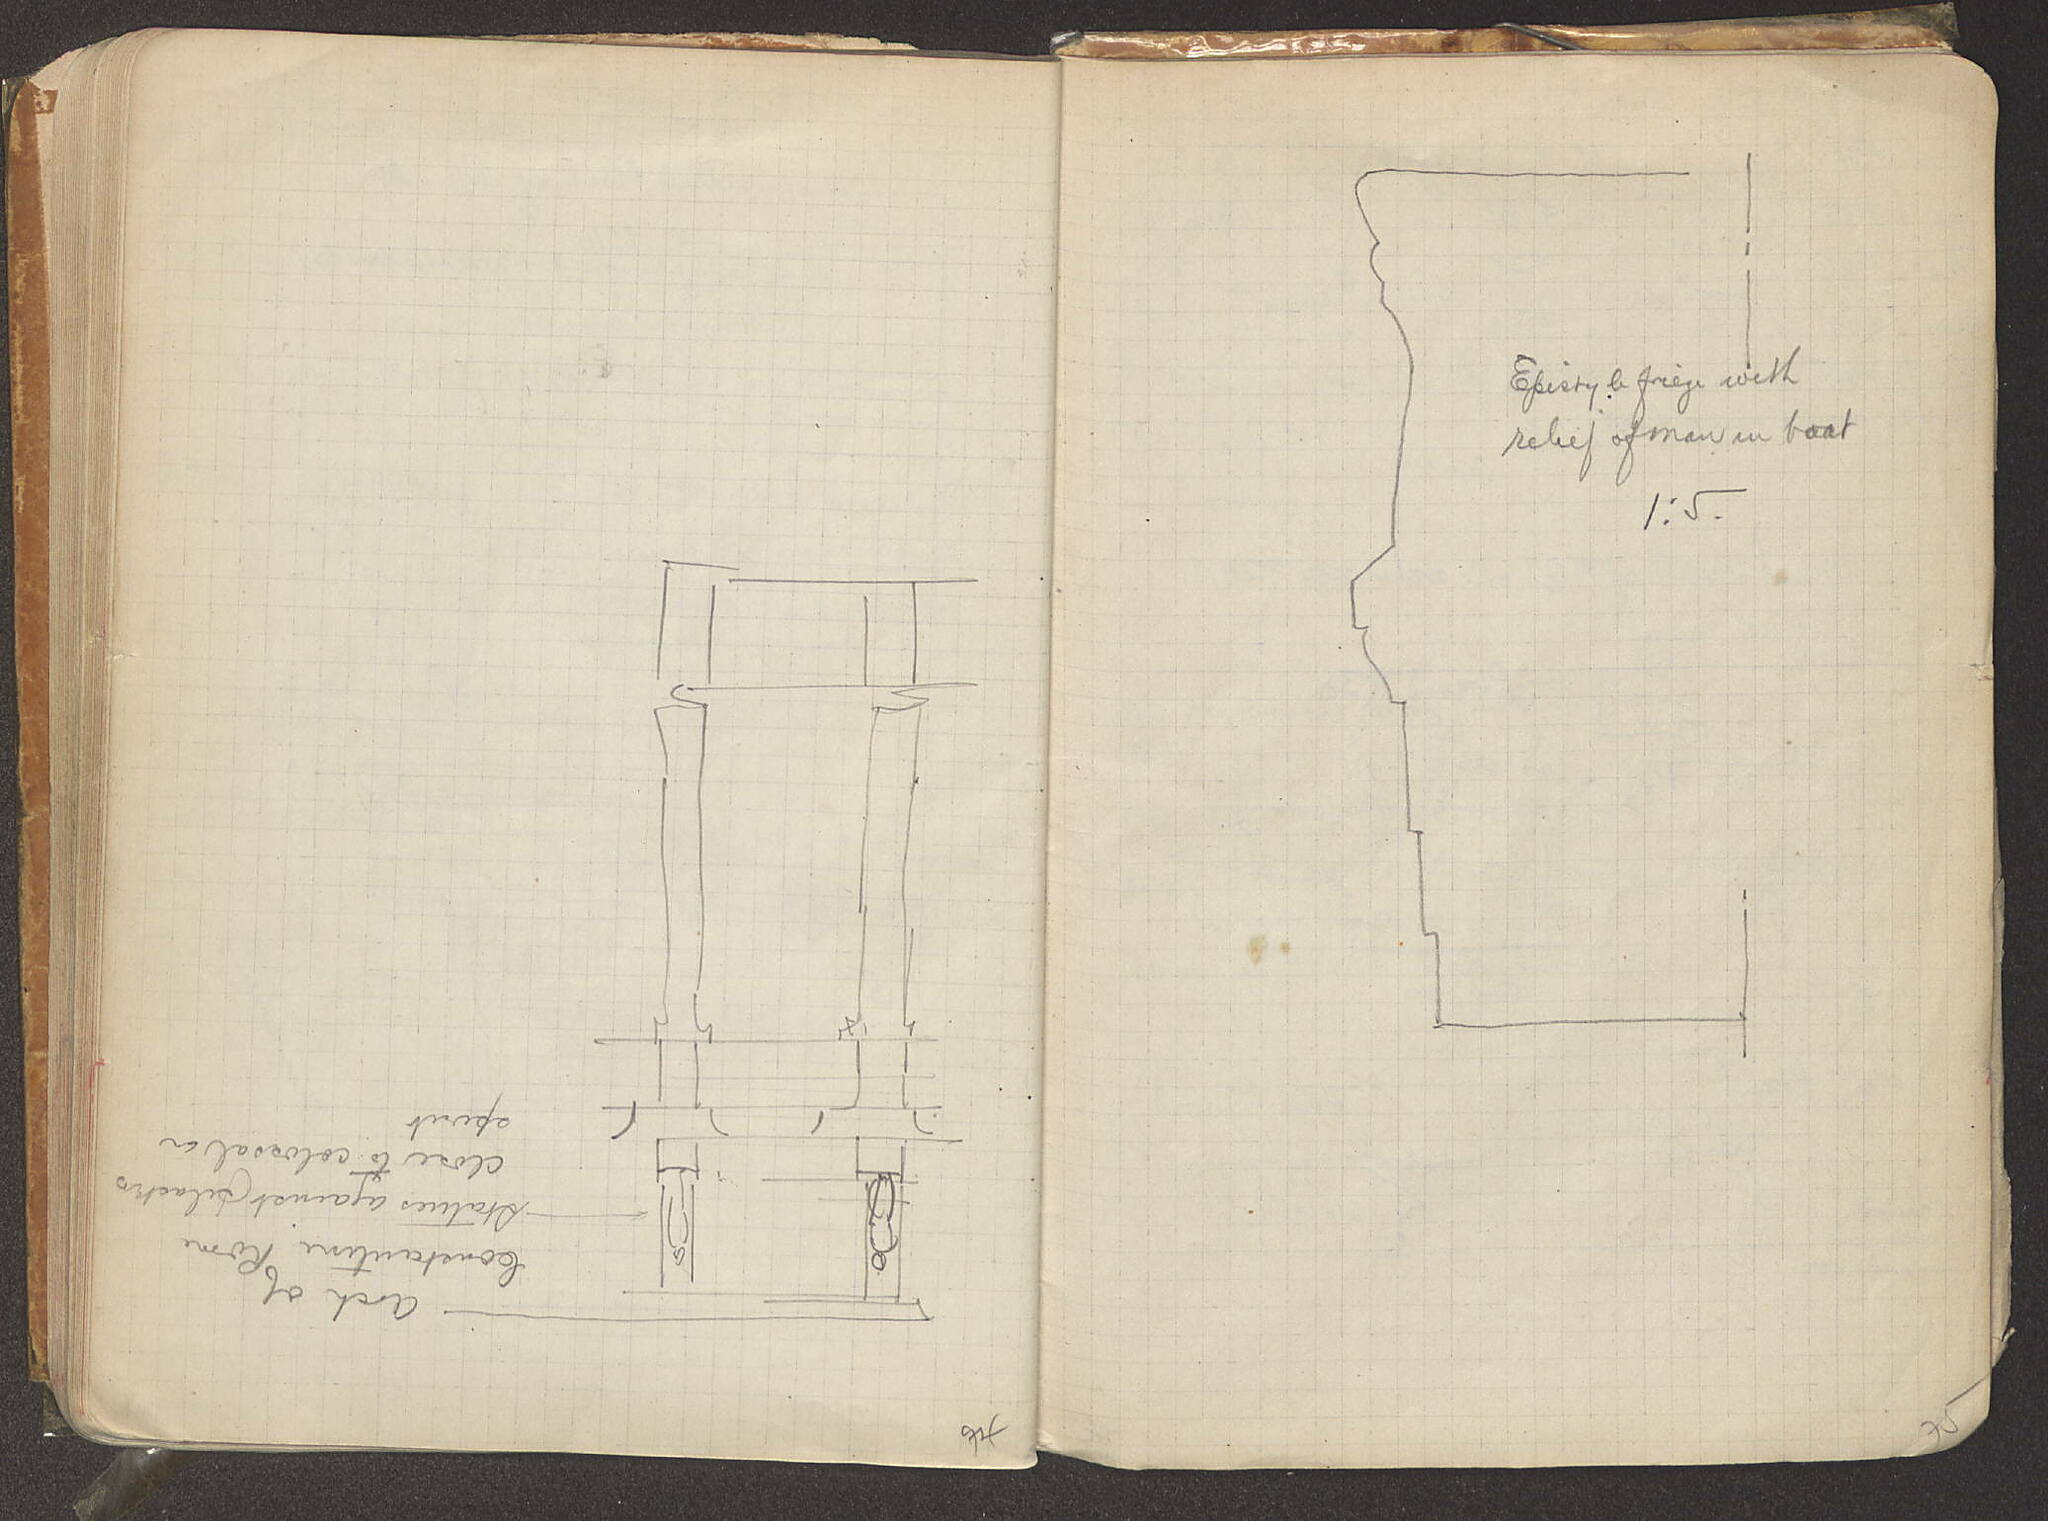 Arch of
Constantine Rome
Statues against pilasters
close to colossal in
spirit
76
Epistyle frieze with
relief of man in boat
1:5.
75